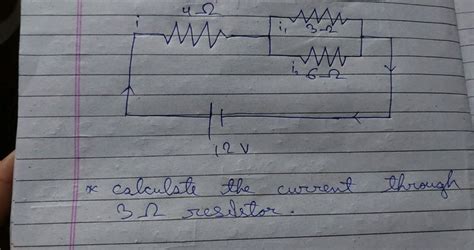 4Ω
i
i₁ 3Ω
i₂ 6Ω
12V
* calculate the current through
3Ω resistor.